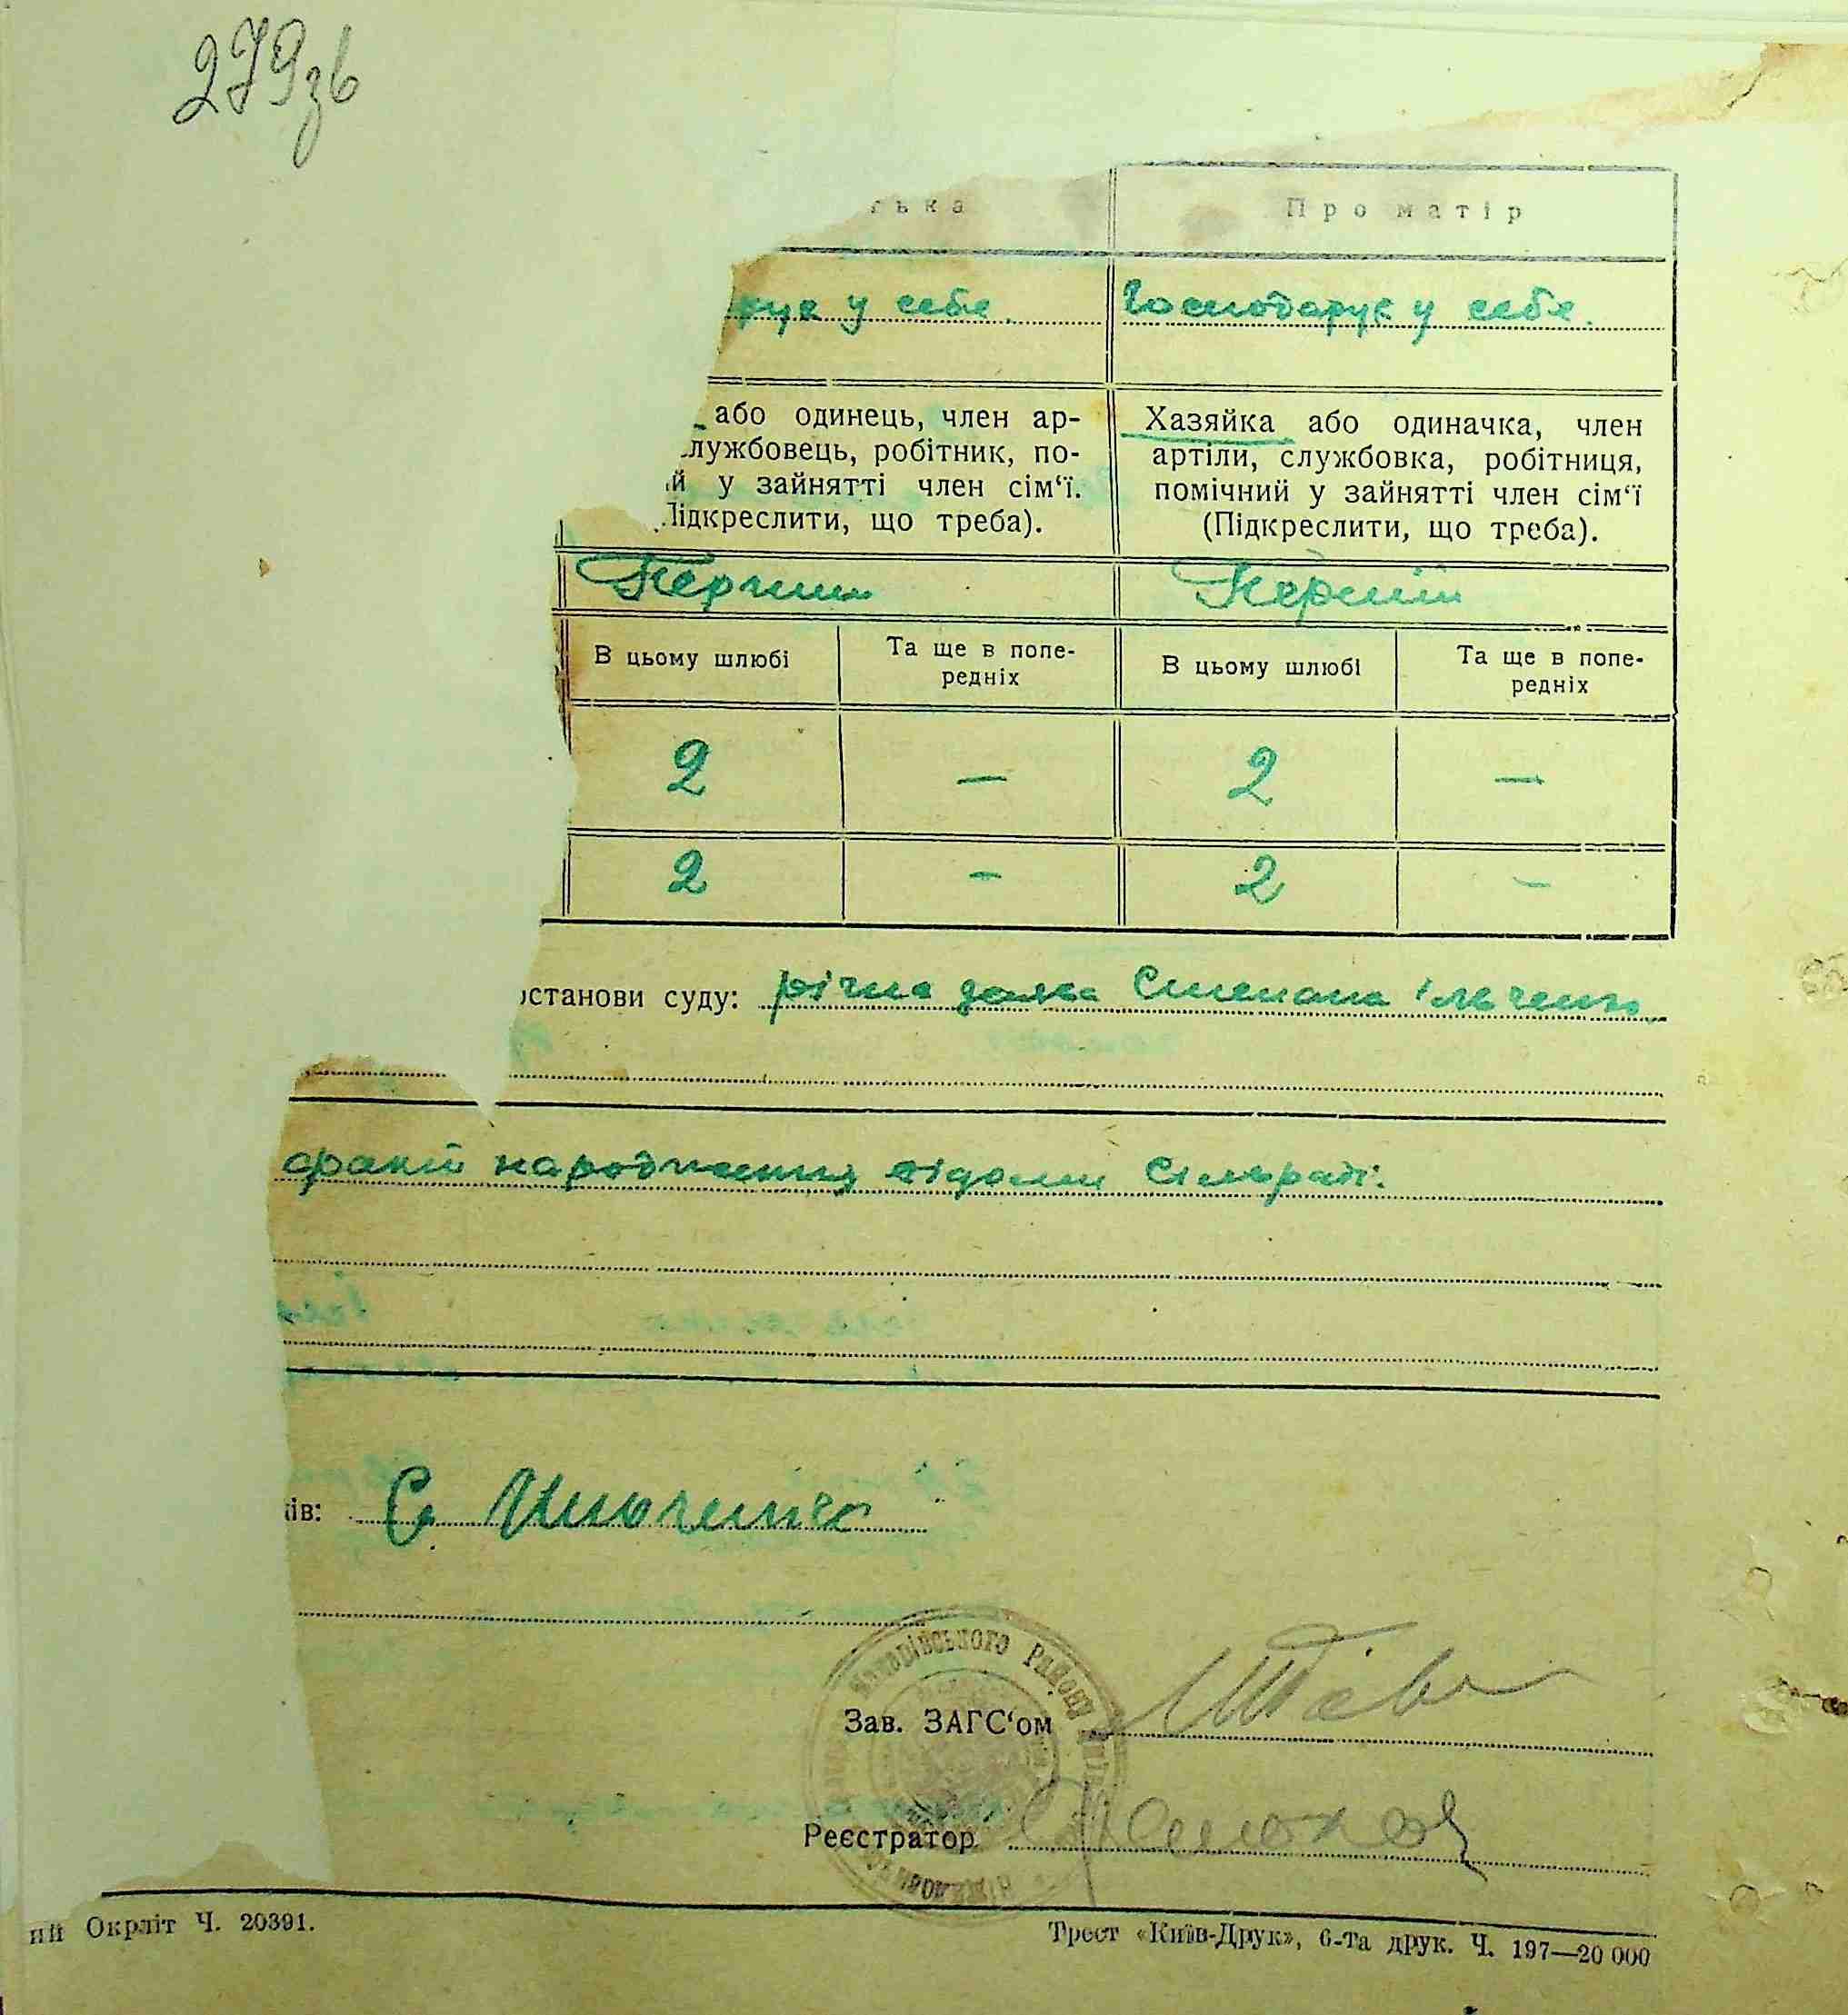 279зв
тька Про матір
рує у себе. Господарує у себе.
або одинець, член ар- Хазяйка або одиначка, член
службовець, робітник, по- артіли, службовка, робітниця,
й у зайнятті член сім‘ї. помічний у зайнятті член сім‘ї
Підкреслити, що треба). (Підкреслити, що треба).
Перший Перший
В цьому шлюбі Та ще в попе- В цьому шлюбі Та ще в попе-
редніх редніх
2 — 2 —
2 — 2 —
останови суду: річна заява Степана Ільченко
факт народження відомий Сільраді.
ків: С. Ильченко
районц
Зав. ЗАГС‘ом
Реєстратор
ий Окрліт Ч. 20391. Трест «Київ-Друк», 6-та друк. Ч. 197—20 000